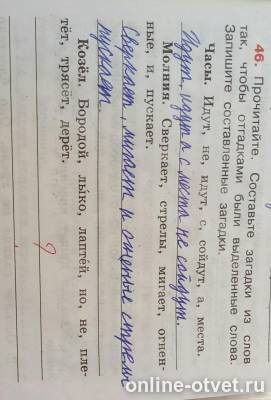 46. Прочитайте. Составьте загадки из слов
так, чтобы отгадками были выделенные слова.
Запишите составленные загадки.
Часы. Идут, не, идут, с, сойдут, а, места.
Идут, идут а с места не сойдут.
Молния. Сверкает, стрелы, мигает, огнен-
ные, и, пускает.
Сверкает, мигает и огненые стрелы
пускает.
Козёл. Бородой, лыко, лаптей, но, не, пле-
тёт, трясёт, дерёт.
?
online-otvet.ru